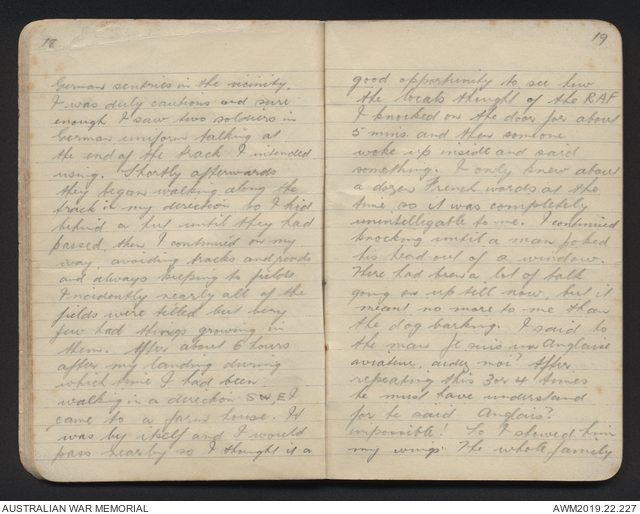 18
German sentries in the vicinity.
I was duly cautious and sure
enough I saw two soldiers in
German uniform talking at
the end of the track I intended
using. Shortly afterwards
they began walking along the
track in my direction so I hid
behind a hut until they had
passed, then I continued on my
way avoiding tracks and roads
and always keeping to fields
Incidently nearly all of the
fields were tilled but very
few had things growing in
them. After about 6 hours
after my landing during
which time I had been
walking in a direction
came to a farm house. It
was by itself and I would
pass nearby so I thought it a
19
good opportunity to see how
the locals thought of the RAF
I knocked on the door for about
5 mins and then someone
woke up inside and said
something. I only knew about
a dozen French words at the
time so it was completely
unintellegable to me. I continued
knocking until a man poked
his head out of a window.
There had been a lot of talk
going on up till now, but it
meant no more to me than
the dog barking. I said to
the man Je suis un Anglaise
aviateur, aidez moi? After
repeating this 3 or 4 times
he must have understand
for he said Anglais?
impossible! So I showed him
my wings. The whole family
AUSTRALIAN WAR MEMORIAL
AWM2019.22.227